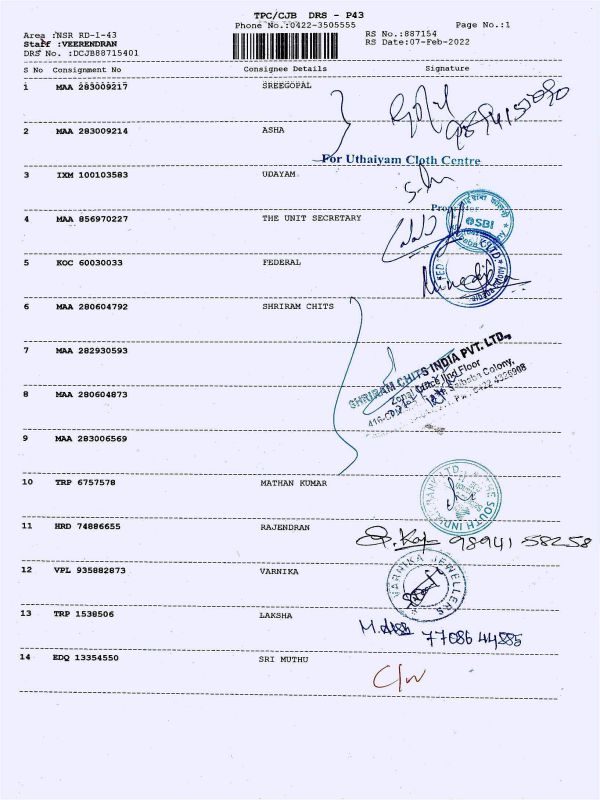 TPC/CJB DRS - P43
Phone No.:0422-3505555 Page No.:1
Area :NSR RD-I-43 RS No.:887154
Staff :VEERENDRAN RS Date:07-Feb-2022
DRS No. :DCJB88715401
S No Consignment No Consignee Details Signature
1 MAA 283009217 SREEGOPAL
2 MAA 283009214 ASHA
For Uthaiyam Cloth Centre
3 IXM 100103583 UDAYAM
4 MAA 856970227 THE UNIT SECRETARY
SBI
5 KOC 60030033 FEDERAL
6 MAA 280604792 SHRIRAM CHITS
SHRIRAM CHITS INDIA PVT. LTD.,
Zonal Office IInd Floor
Saibaba Colony,
0422 4326908
7 MAA 282930593
8 MAA 280604873
9 MAA 283006569
10 TRP 6757578 MATHAN KUMAR
BANK LTD. THE SOUTH INDIAN
11 HRD 74886655 RAJENDRAN
98941 58258
12 VPL 935882873 VARNIKA
VARNIKA JEWELLERS
13 TRP 1538506 LAKSHA
77086 44885
14 EDQ 13354550 SRI MUTHU
C/W